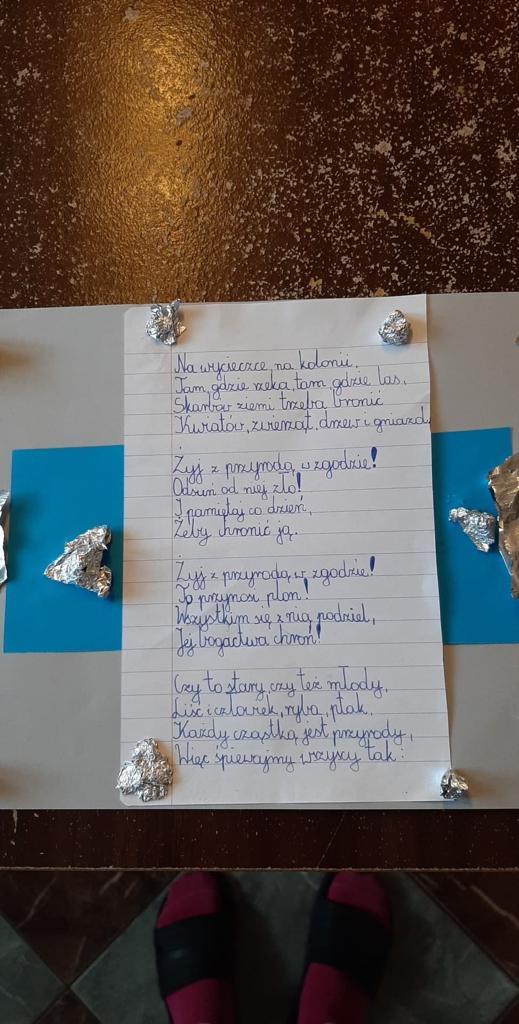 Na wycieczce, na kolonii,
Tam, gdzie rzeka, tam, gdzie las,
Skarbów ziemi trzeba bronić
Kwiatów, zwierząt, drzew i gniazd.
.
Żyj z przyrodą w zgodzie!
Odsuń od niej zło!
I pamiętaj co dzień,
Żeby chronić ją.
.
Żyj z przyrodą, w zgodzie!
To przynosi plon!
Wszystkim się z nią podziel,
Jej bogactwa chroń!
Czy to stary, czy też młody,
Liść i człowiek, ryba, ptak,
Każdy cząstką jest przyrody,
Więc śpiewajmy wszyscy tak: